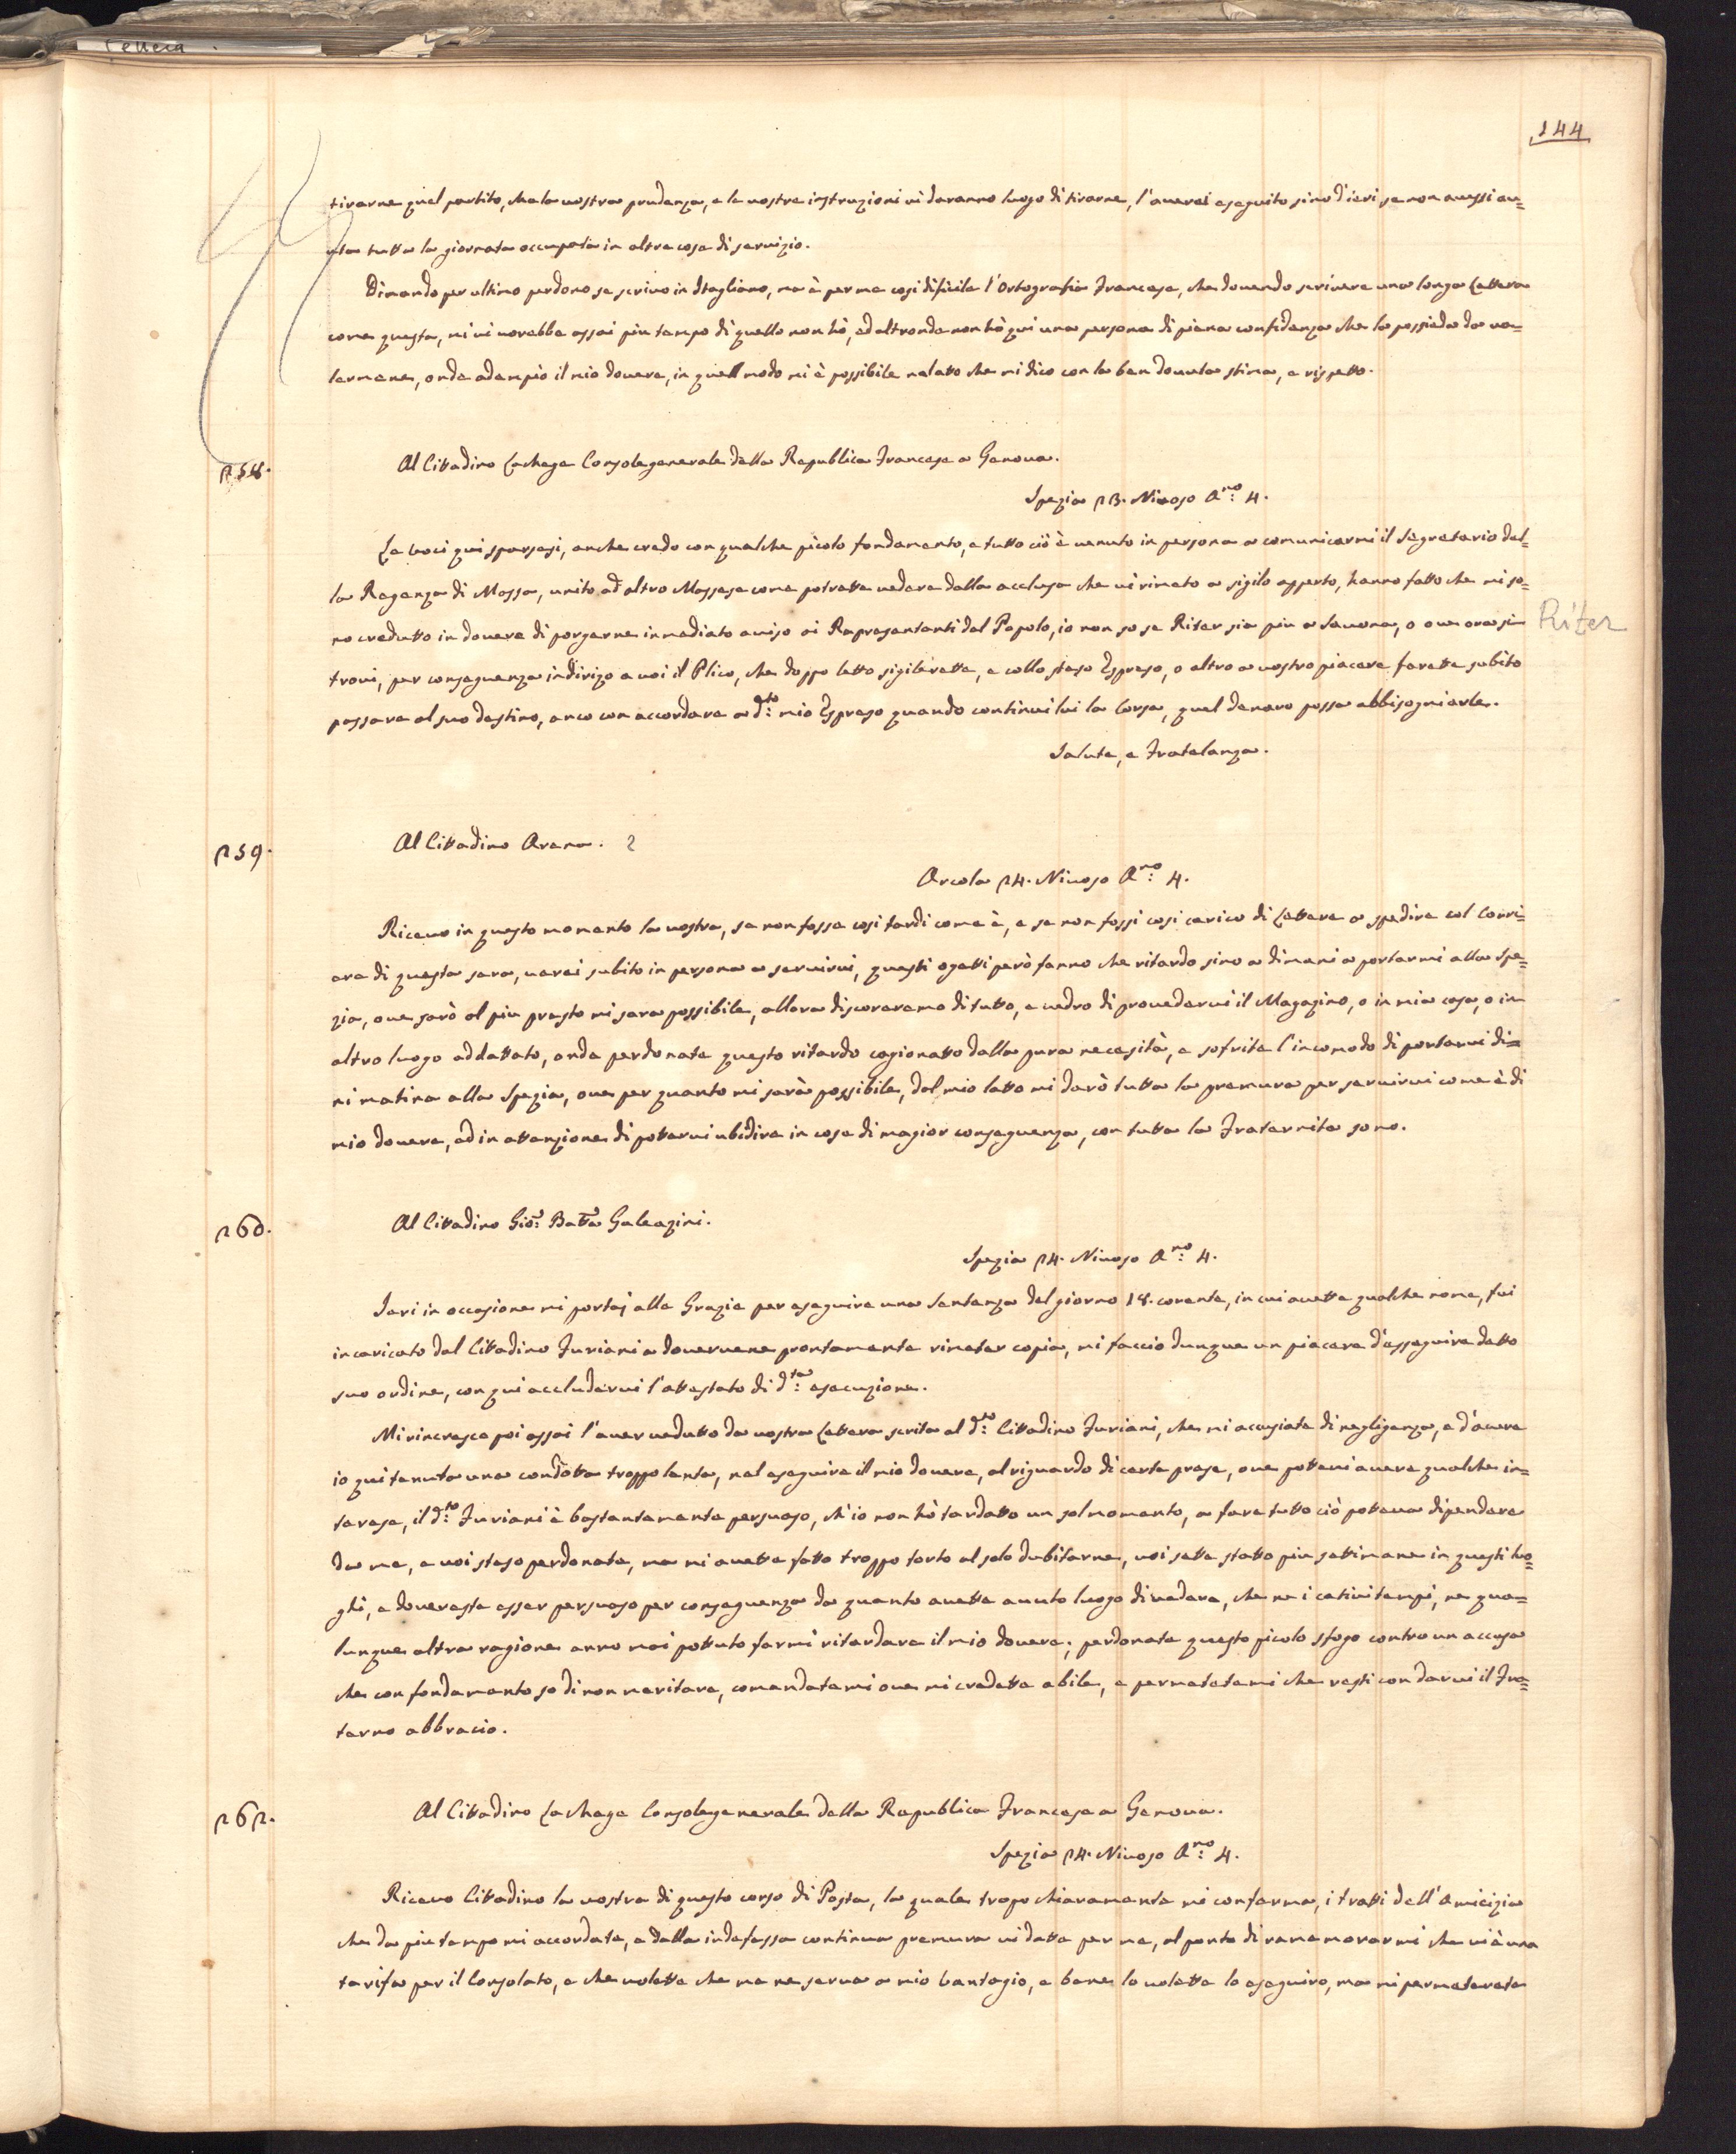 144
tirarne quel partito, che la vostra prudenza, e le vostre instruzioni vi daranno luogo di tirarne, l'averei eseguito sino d'ieri se non avessi au=
uta tutta la giornata occupata in altre cose di servizio.
Dimando per ultimo perdono se scrivo in Itagliano, ma è per me cosi dificile l'Ortografia Francese, che dovendo scrivere una longa Lettera
come questa, mi vi vorebbe assai piu tempo di quello non hò, ed altronde non hò qui una persona di piena confidenza che la possieda da va=
lermene, onde adempio il mio dovere, in quell modo mi è possibile nel atto che mi dico con la ben dovuta stima, e rispetto.
258. Al Cittadino Lachege Consolegenerale della Republica Francese a Genova.
Spezia 23. Nivoso A.no 4.
Le Voci qui sparsesi, anche credo con qualche picolo fondamento, e tutto ciò è venuto in persona a comunicarmi il Segretario del=
la Regenza di Massa, unito ad altro Massese come potrette vedere dalla acclusa che vi rimeto a sigilo apperto, hanno fatto che mi so=
no credutto in dovere di porgerne inmediato aviso ai Rapresentanti del Popolo, io non so se Riter sia piu a Savona, o ove ora si
Ritter
trovi, per conseguenza indirizo a voi il Plico, che doppo letto sigilerette, e collo steso Espreso, o altro a vostro piacere farette subito
passare al suo destino, anco con accordare a d.to mio Espreso quando continui lui la Corsa, quel denaro possa abbisogniarle.
Salute, e Fratelanza.
259. Al Cittadino Arena. 2
Arcola 24. Nivoso A.no 4.
Ricevo in questo momento la vostra, se non fosse cosi tardi come è, e se non fossi cosi carico di Lettere a spedire col Corri=
ere di questa sera, verei subito in persona a servirvi, questi ogetti però fanno che ritardo sino a dimani a portarmi alla Spe=
zia, ove sarò al piu presto mi sara possibile, allora discoreremo di tutto, e vedro di provedervi il Magazino, o in mia casa, o in
altro luogo addattato, onde perdonate questo ritardo cagionatto dalla pura necesità, e sofrite l'incomodo di portarvi di=
ni matina alla Spezia, ove per quanto mi sarà possibile, dal mio latto mi darò tutta la premura per servirvi come è di
mio dovere, ed in attenzione di pottervi ubidire in cose di magior conseguenza, con tutta la Fraternita sono.
260. Al Cittadino Gio: Batta Galeazini.
Spezia 24. Nivoso A.no 4.
Jeri in occasione mi portai alle Grazie per eseguire una Sentenza del giorno 18. corente, in cui avette qualche nome, fui
incaricato dal Cittadino Furiani a dovervene prontamente rimeter copia, mi faccio dunque un piacere d'esseguire detto
suo ordine, con qui accludervi l'attestato di d.ta esecuzione.
Mi rincresce poi assai l'aver vedutto da vostra Lettera scrita al d.to Cittadino Furiani, che mi accusiate di negligenza, e d'avere
io qui tenuta una condotta troppo lenta, nel eseguire il mio dovere, al riguardo di certe prese, ove pottevi avere qualche in=
terese, il d.to Furiani è bastantemente persuaso, ch'io non hò tardatto un sol momento, a fare tutto ciò potteva dipendere
da me, e voi steso perdonate, ma mi avette fatto troppo torto al solo dubitarne, voi sette statto piu settimane in questi luo=
ghi, e dovereste esser persuaso per conseguenza da quanto avette avuto luogo di vedere, che ne i cativi tempi, ne qua=
lunque altra ragione anno mai pottuto farmi ritardare il mio dovere; perdonate questo picolo sfogo contro un accusa
che con fondamento so di non meritare, comandatemi ove mi credette abile, e permetetemi che resti con darvi il Fra=
terno abbracio.
262. Al Cittadino Lachege Consolegenerale della Republica Francese a Genova.
Spezia 24. Nivoso A.no 4.
Ricevo Cittadino la vostra di questo corso di Posta, la quale tropo chiaramente mi conferma, i tratti dell'Amicizia
che da piu tempo mi accordate, e dalla indefessa continua premura vi datte per me, al ponto di ramemorarmi che vi è una
tarifa per il Consolato, e che volette che me ne serva a mio Vantagio, e bene lo volette lo eseguiro, ma mi permeterete